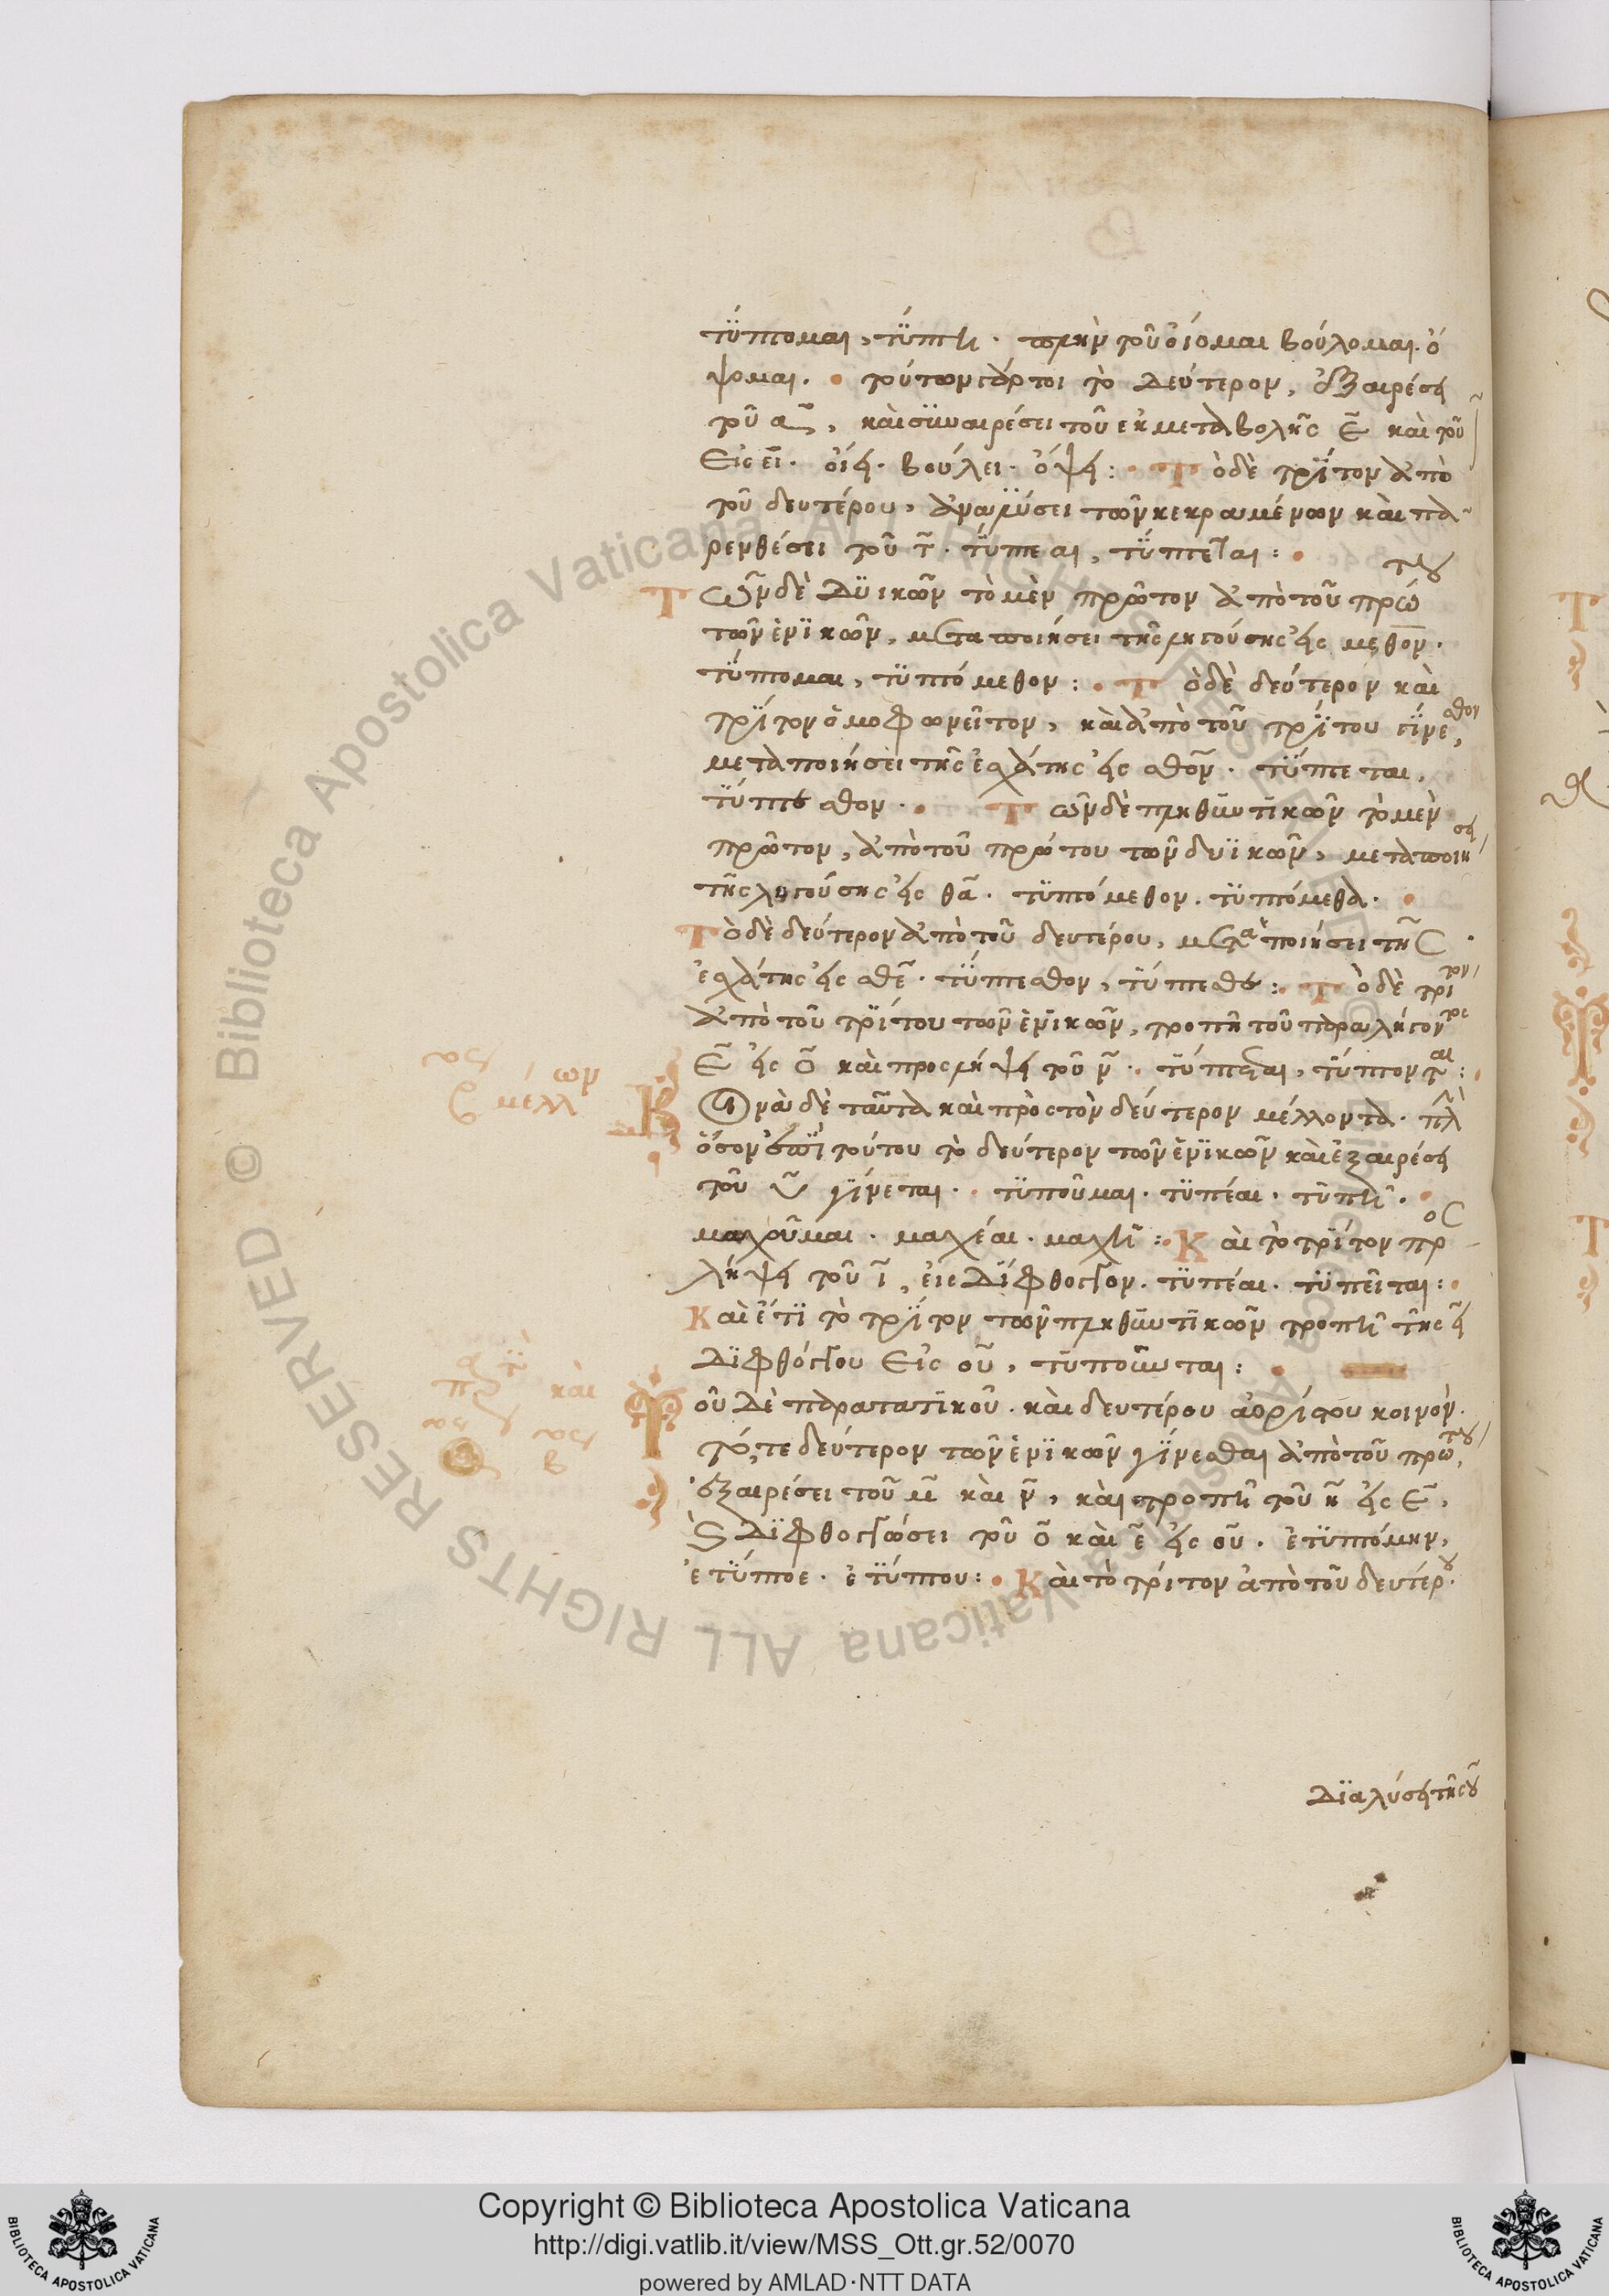 τύπτομαι, τύπτῃ. πλὴν τοῦ οἴομαι βούλομαι. ὄ
ψομαι. τούτων γάρ τοι τὸ δεύτερον, ἐξαιρέσει
τοῦ , καὶ συναιρέσει τοῦ ἐκ μεταβολῆς ε καὶ τοῦ
εἰς ει. οἴει. βούλει. ὄψει: Τὸ δὲ τρίτον ἀπὸ
τοῦ δευτέρου, ἀναλύσει τῶν κεκραμένων καὶ πα
ρενθέσει τοῦ τ. τύπτεαι, τύπτεται:
Τῶν δὲ δυϊκῶν τὸ μὲν πρῶτον ἀπὸ τοῦ πρώτου
τῶν ἑνικῶν, μεταποιήσει τῆς ληγούσης εἰς μεθον.
τύπτομαι, τυπτόμεθον: Τὸ δὲ δεύτερον καὶ
τρίτον ὁμοφωνεῖτον, καὶ ἀπὸ τοῦ τρίτου γίνεσθον,
μεταποιήσει τῆς ἐσχάτης εἰς σθον. τύπτεται,
τύπτεσθον. Τῶν δὲ πληθυντικῶν τὸ μὲν
πρῶτον, ἀπὸ τοῦ πρώτου τῶν δυϊκῶν, μεταποιήσει
τῆς ληγούσης εἰς θα. τυπτόμεθον. τυπτόμεθα.
Τὸ δὲ δεύτερον ἀπὸ τοῦ δευτέρου, μεταποιήσει τῆς
ἐσχάτης εἰς σθε. τύπτεσθον, τύπτεσθε: Τὸ δὲ τρίτον
ἀπὸ τοῦ τρίτου τῶν ἑνικῶν, τροπῇ τοῦ παραλήγοντος
ε εἰς ο καὶ προσλήψει τοῦ ν. τύπτεται, τύπτονται:
ος μέλλων
Κοινὰ δὲ ταῦτα καὶ πρὸς τὸν δεύτερον μέλλοντα. πλὴν
ὅσον ἐπὶ τούτου τὸ δεύτερον τῶν ἑνικῶν καὶ ἐξαιρέσει
τοῦ γίνεται. τυποῦμαι. τυπέαι. τυπῇ.
μαχοῦμαι. μαχέαι. μαχῇ: Καὶ τὸ τρίτον προσ
λήψει τοῦ τ, εἰς δίφθογγον. τυπέαι. τυπεῖται:
Καὶ ἔτι τὸ τρίτον τῶν πληθυντικῶν τροπῇ τῆς ει
διφθόγγου εἰς ου, τυποῦνται:
καὶ
Τοῦ δὲ παρατατικοῦ. καὶ δευτέρου ἀορίστου κοινόν.
τό, τε δεύτερον τῶν ἑνικῶν γίνεσθαι ἀπὸ τοῦ πρώτου,
ἐξαιρέσει τοῦ μ καὶ ν, καὶ τροπῇ τοῦ η εἰς ε,
καὶ διφθογγώσει τοῦ ο καὶ ε εἰς ου. ἐτυπτόμην,
ἐτύπτοε. ἐτύπτου: Καὶ τὸ τρίτον ἀπὸ τοῦ δευτέρου.
διαλύσει τῆς ου
Copyright © Biblioteca Apostolica Vaticana
http://digi.vatlib.it/view/MSS_Ott.gr.52/0070
powered by AMLAD·NTT DATA